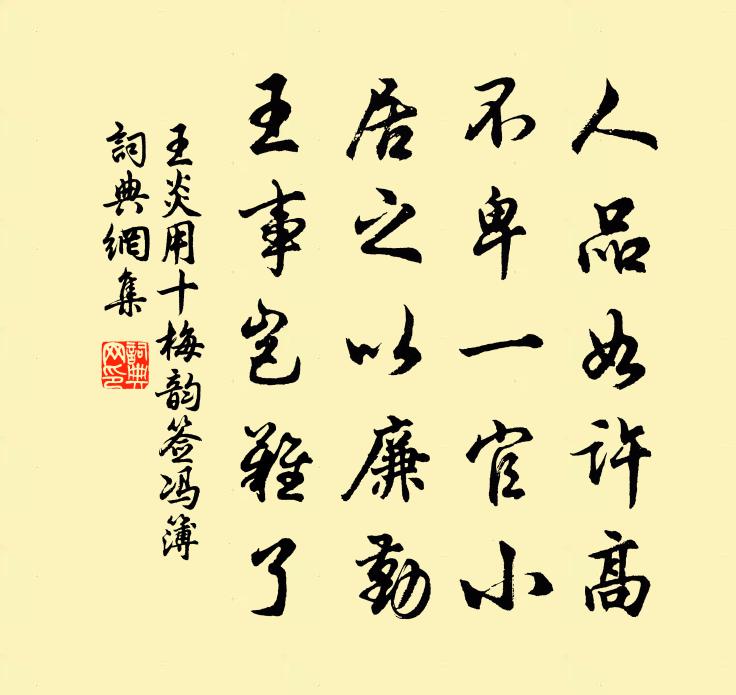 人品如許高
不卑一官小
居之以廉勤
王事豈難了
王炎用十梅韵签冯簿
詞典網集
詞典網印